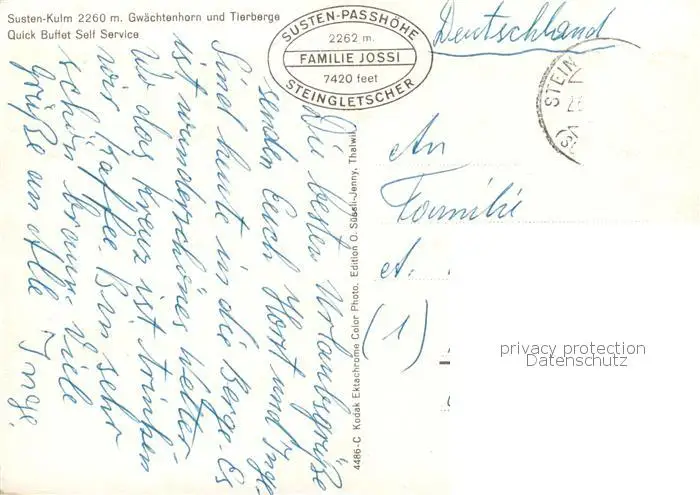 Susten-Kulm 2260 m. Gwächtenhorn und Tierberge
Quick Buffet Self Service
SUSTEN-PASSHÖHE
2262 m.
FAMILIE JOSSI
7420 feet
STEINGLETSCHER
Deutschland
STEIN
Die besten Urlaubsgrüße
senden Euch Horst und Inge.
Sind heute in die Berge. Es
ist wunderschönes Wetter.
Wo das Kreuz ist trinken
wir Kaffee. Bin sehr
schön braun. Viele
Grüße an Alle Inge.
4486-C Kodak Ektachrome Color Photo. Edition O. Süssli-Jenny, Thalwil
An
Familie
A.
(1)
privacy protection
Datenschutz